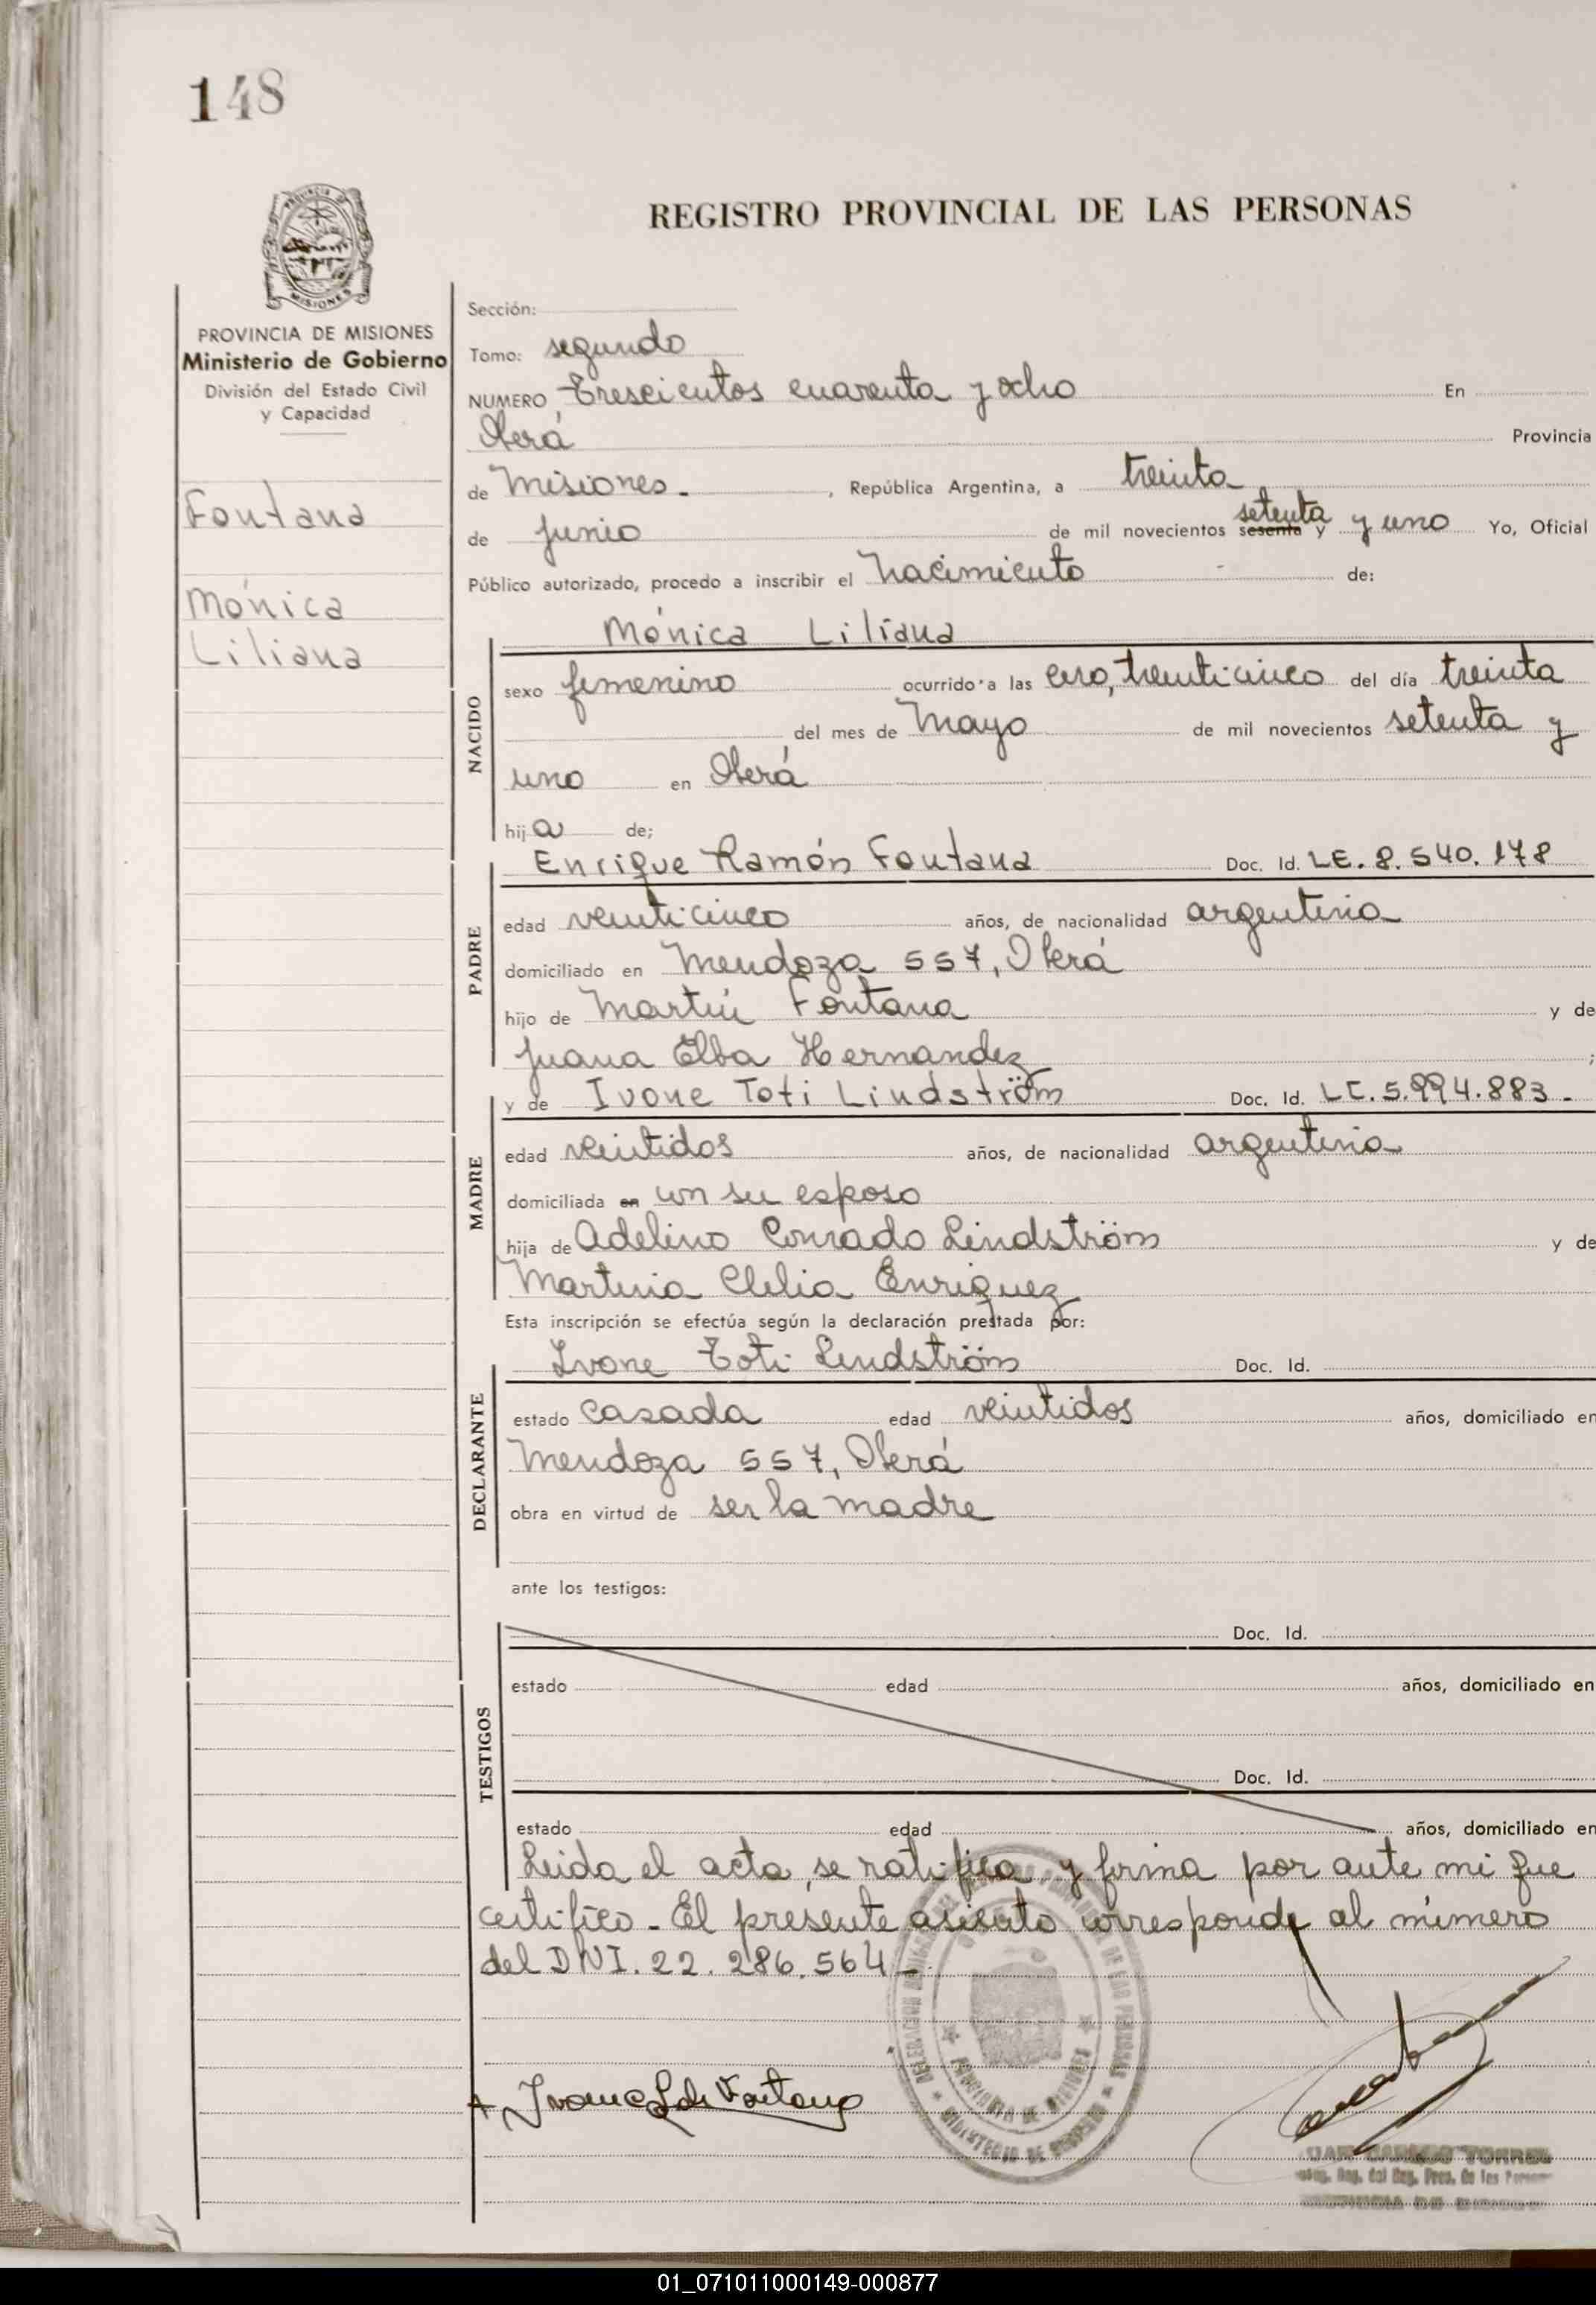 148
REGISTRO PROVINCIAL DE LAS PERSONAS
PROVINCIA DE MISIONES
Ministerio de Gobierno
División del Estado Civil
y Capacidad
Fontana
Mónica
Liliana
Sección:
Tomo: segundo
NUMERO Trescientos cuarenta y ocho En
Oberá Provincia
de Misiones. , República Argentina, a treinta
de junio de mil novecientos sesenta y setenta y uno Yo, Oficial
Público autorizado, procedo a inscribir el nacimiento de:
Mónica Liliana
NACIDO
sexo femenino ocurrido a las cero, treinticinco del día treinta
del mes de Mayo de mil novecientos setenta y
uno en Oberá
hija de;
PADRE
Enrique Ramón Fontana Doc. Id. LE. 8.540.178
edad veinticinco años, de nacionalidad argentina
domiciliado en Mendoza 557, Oberá
hijo de Martín Fontana y de
Juana Elba Hernandez ;
MADRE
y de Ivone Toti Lindström Doc. Id. LC. 5.994.883.-
edad veintidos años, de nacionalidad argentina
domiciliada en con su esposo
hija de Adelino Conrado Lindström y de
Martina Clelia Enriquez
Esta inscripción se efectúa según la declaración prestada por:
DECLARANTE
Ivone Toti Lindström Doc. Id.
estado casada edad veintidos años, domiciliado en
Mendoza 557, Oberá
obra en virtud de ser la madre
ante los testigos:
TESTIGOS
Doc. Id.
estado edad años, domiciliado en
Doc. Id.
estado edad años, domiciliado en
Leida el acta, se ratifica y firma por ante mi que
certifico - El presente asiento corresponde al número
del DNI. 22.286.564.-
Ivone L de Fontana
JUAN CARLOS TORRES
01_071011000149-000877